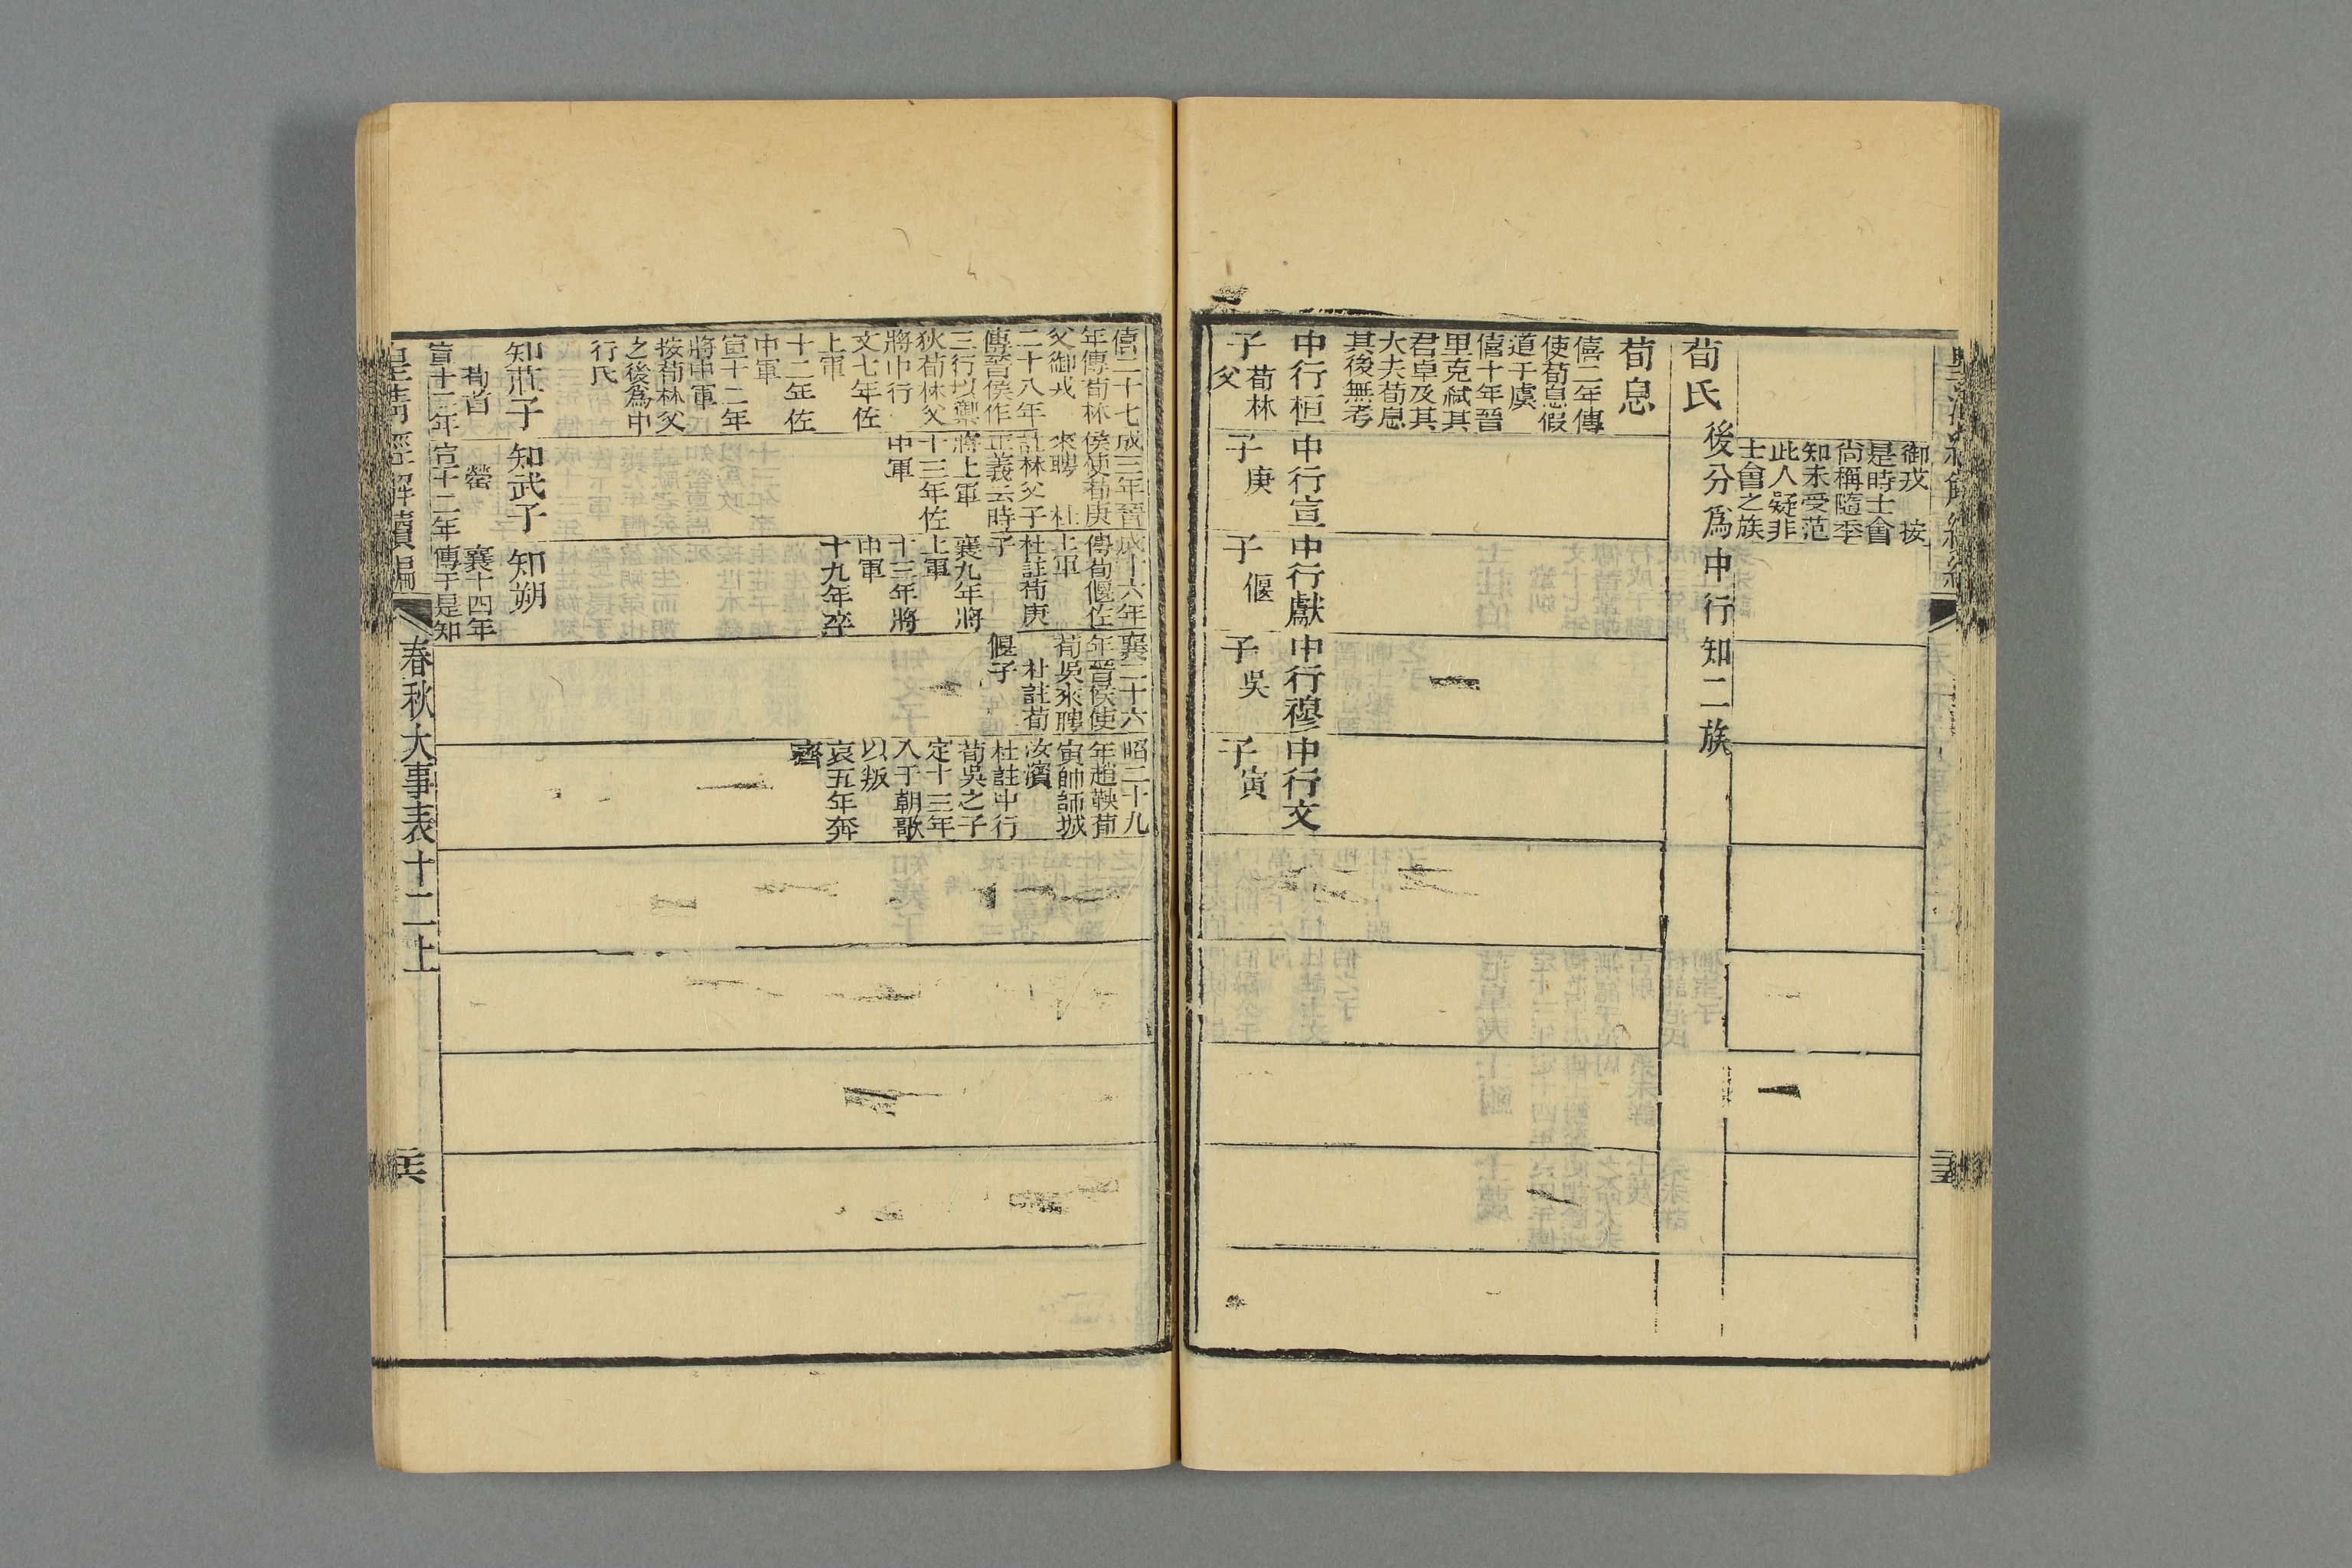 御戎　按
是時士會
尚稱隨季
知未受范
此人疑非
士會之族
荀氏後分爲中行知二族
荀息
僖二年傳
使荀息假
道于虞
僖十年晉
里克弑其
君卓及其
大夫荀息
其後無考
中行桓
子荀林
父
中行宣
子庚
中行獻
子偃
中行穆
子吳
中行文
子寅
僖二十七
年傳荀林
父御戎
二十八年
傳晉侯作
三行以禦
狄荀林父
將中行
文七年佐
上軍
十二年佐
中軍
宣十二年
將中軍
按荀林父
之後爲中
行氏
成三年晉
侯使荀庚
來聘　杜
註林父子
正義云時
將上軍
十三年佐
中軍
成十六年
傳荀偃佐
上軍
杜註荀庚
子
襄九年將
上軍
十三年將
中軍
十九年卒
襄二十六
年晉侯使
荀吳來聘
杜註荀
偃子
昭二十九
年趙鞅荀
寅帥師城
汝濱
杜註中行
荀吳之子
定十三年
入于朝歌
以叛
哀五年奔
齊
知莊子
荀首
宣十二年
知武子
罃
宣十二年
知朔
襄十四年
傳于是知
皇清經解續編
春秋大事表十二上